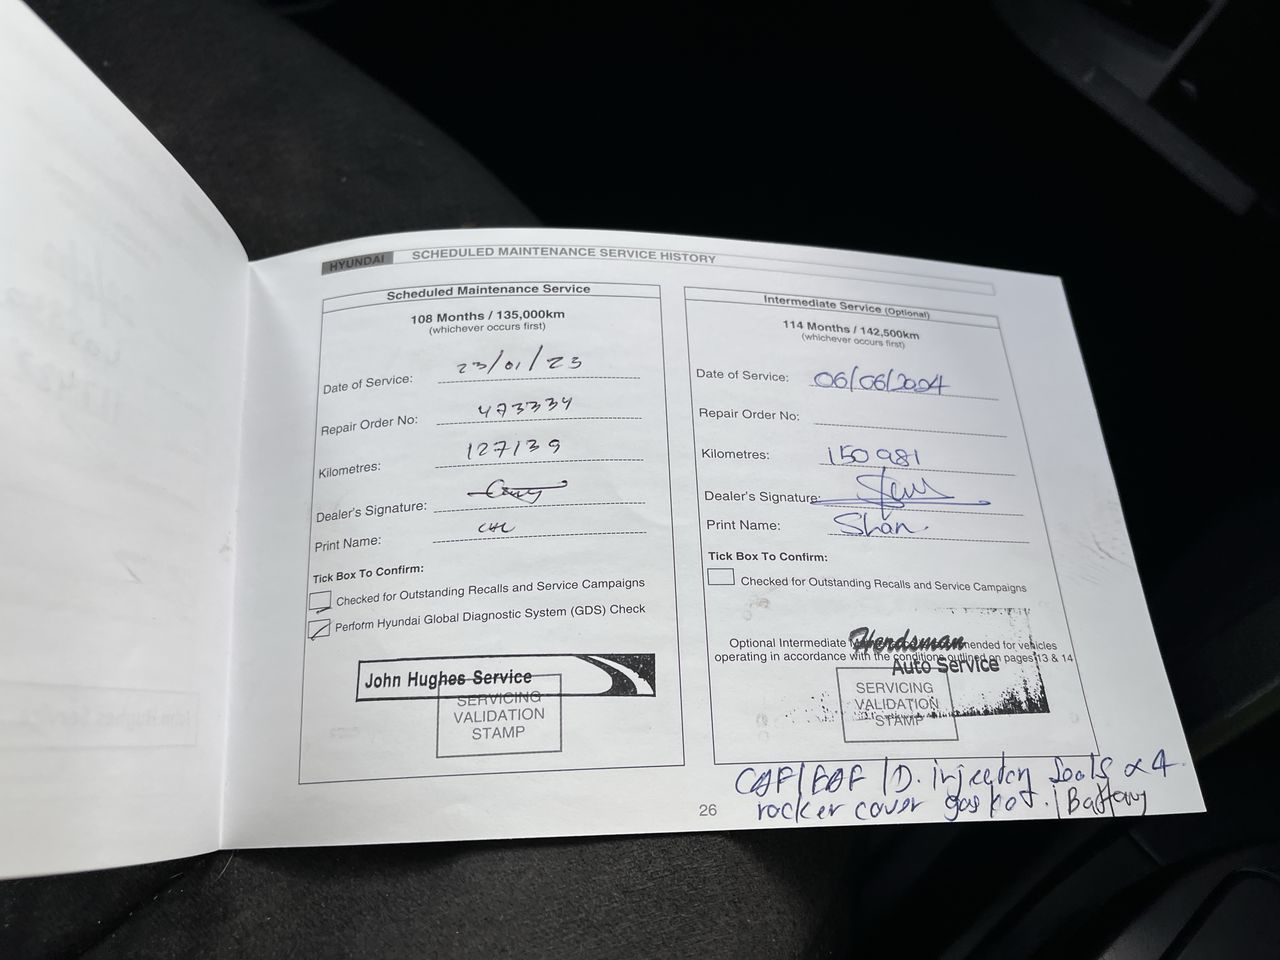 HYUNDAI SCHEDULED MAINTENANCE SERVICE HISTORY
Scheduled Maintenance Service
108 Months / 135,000km
(whichever occurs first)
Date of Service: 23/01/23
Repair Order No: 473334
Kilometres: 127139
Dealer's Signature:
Print Name:
Tick Box To Confirm:
Checked for Outstanding Recalls and Service Campaigns
Perform Hyundai Global Diagnostic System (GDS) Check
John Hughes Service
SERVICING
VALIDATION
STAMP
Intermediate Service (Optional)
114 Months / 142,500km
(whichever occurs first)
Date of Service: 06/06/2004
Repair Order No:
Kilometres: 150981
Dealer's Signature:
Print Name: Shan.
Tick Box To Confirm:
Checked for Outstanding Recalls and Service Campaigns
Optional Intermediate for vehicles
operating in accordance with the conditions outlined on pages 13 & 14
Herdsman
Auto Service
SERVICING
VALIDATION
STAMP
injector x4
rocker cover gasket. Battery
26